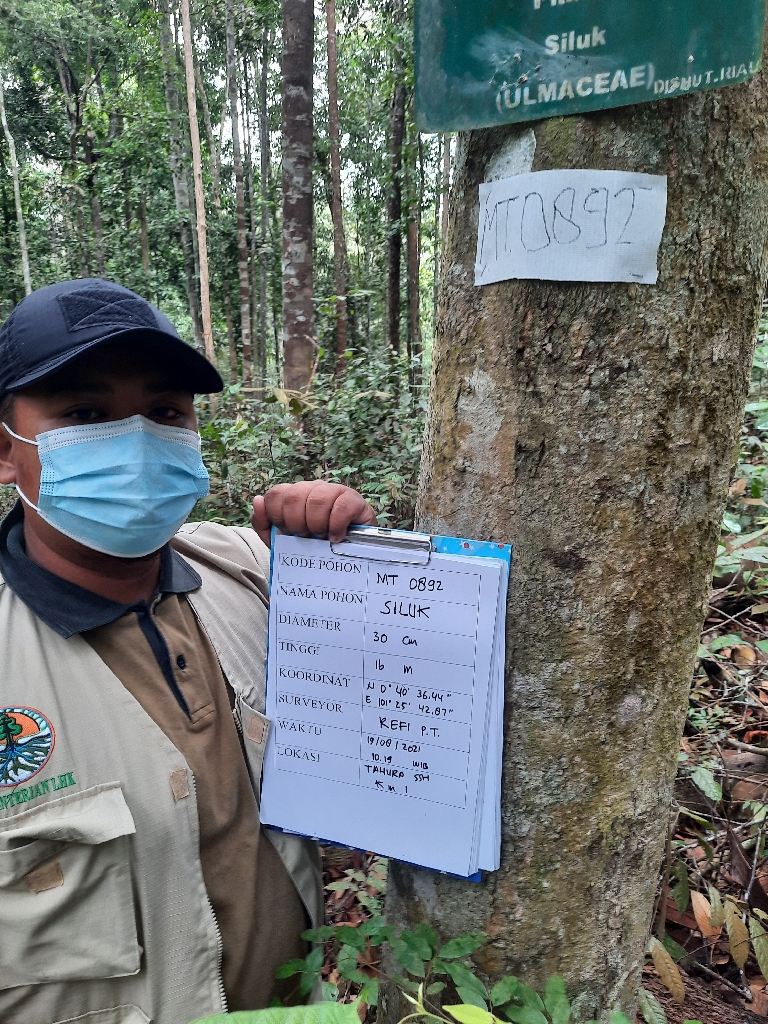 Siluk
(ULMACEAE) DISHUT.RIAU
MT 0892
KODE POHON MT 0892
NAMA POHON SILUK
DIAMETER 30 cm
TINGGI 16 m
KOORDINAT N 0° 40' 36.44"
E 101° 25' 42.87"
SURVEYOR REFI P.T.
WAKTU 19/08/2021
10.19 WIB
LOKASI TAHURA SSH
Km 1
LHK